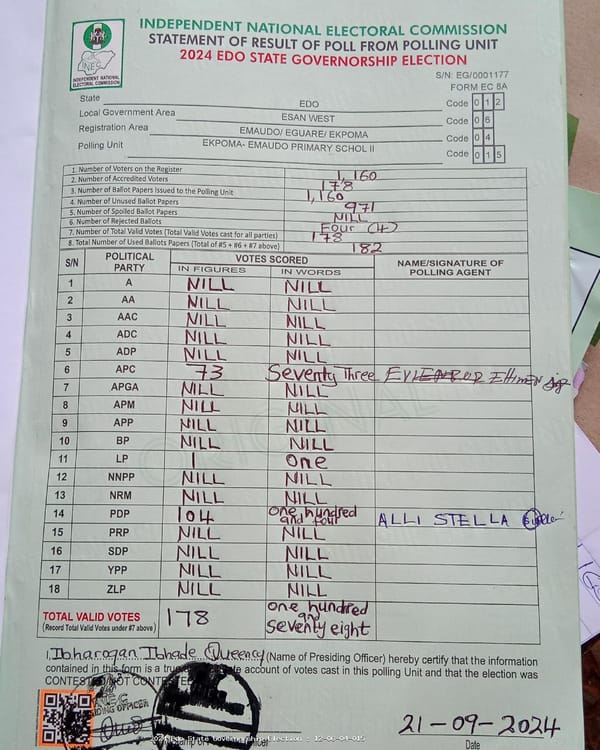 INDEPENDENT NATIONAL ELECTORAL COMMISSION
STATEMENT OF RESULT OF POLL FROM POLLING UNIT
2024 EDO STATE GOVERNORSHIP ELECTION
INDEPENDENT NATIONAL
ELECTORAL COMMISSION
S/N: EG/0001177
FORM EC 8A
State EDO Code 0 1 2
Local Government Area ESAN WEST Code 0 6
Registration Area EMAUDO/ EGUARE/ EKPOMA Code 0 4
Polling Unit EKPOMA- EMAUDO PRIMARY SCHOL II Code 0 1 5
1. Number of Voters on the Register 1,160
2. Number of Accredited Voters 178
3. Number of Ballot Papers Issued to the Polling Unit 1,160
4. Number of Unused Ballot Papers 971
5. Number of Spoiled Ballot Papers NILL
6. Number of Rejected Ballots Four (4)
7. Number of Total Valid Votes (Total Valid Votes cast for all parties) 178
8. Total Number of Used Ballots Papers (Total of #5 + #6 + #7 above) 182
S/N POLITICAL PARTY VOTES SCORED NAME/SIGNATURE OF POLLING AGENT
IN FIGURES IN WORDS
1 A NILL NILL
2 AA NILL NILL
3 AAC NILL NILL
4 ADC NILL NILL
5 ADP NILL NILL
6 APC 73 Seventy Three
7 APGA NILL NILL
8 APM NILL NILL
9 APP NILL NILL
10 BP NILL NILL
11 LP 1 one
12 NNPP NILL NILL
13 NRM NILL NILL
14 PDP 104 one hundred and four ALLI STELLA
15 PRP NILL NILL
16 SDP NILL NILL
17 YPP NILL NILL
18 ZLP NILL NILL
TOTAL VALID VOTES 178 one hundred and seventy eight
(Record Total Valid Votes under #7 above)
I, Queency (Name of Presiding Officer) hereby certify that the information
contained in this form is a true account of votes cast in this polling Unit and that the election was
CONTESTED/NOT CONTESTED
21-09-2024
Date
2024 Edo State Governorship Election - 12-06-04-015